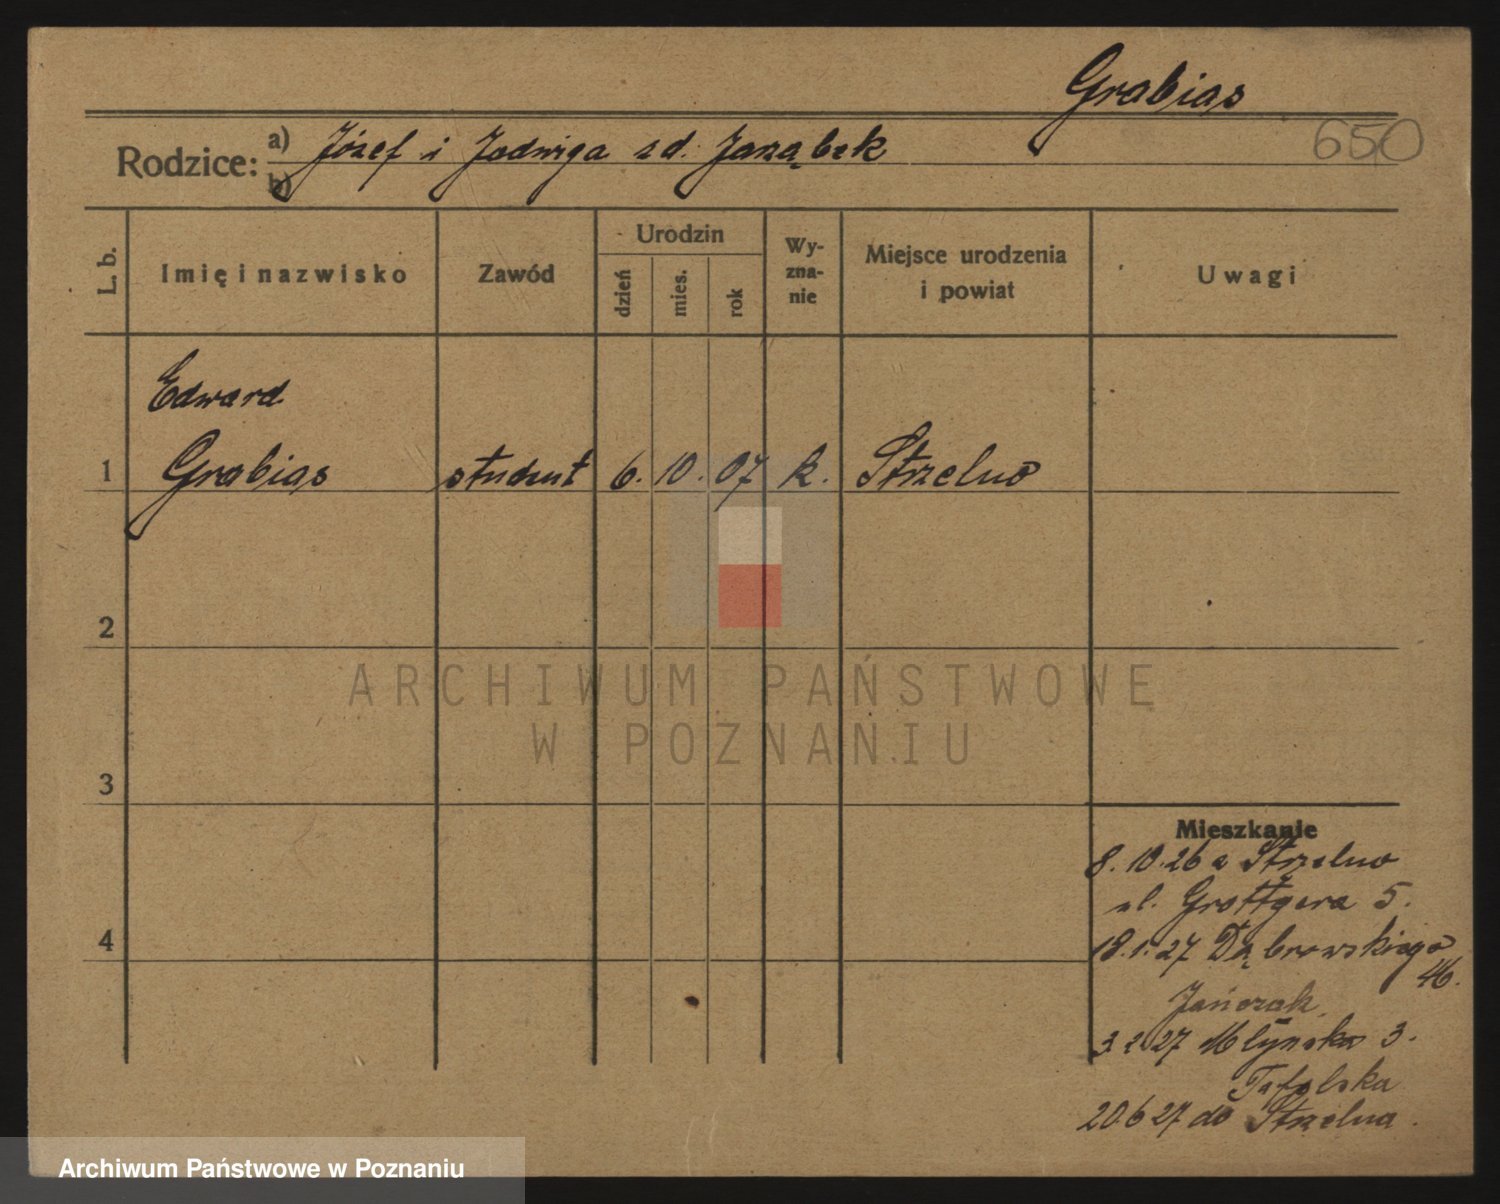 Grabias
650
Rodzice: a) Józef i Jadwiga zd. Jarząbek
b)
L. b.
Imię i nazwisko
Zawód
Urodzin
dzień
mies.
rok
Wy-
zna-
nie
Miejsce urodzenia
i powiat
Uwagi
Edward
1 Grabias student 6. 10. 07 k. Strzelno
2
3
4
Mieszkanie
8.10.26 z Strzelno
ul. Grottgera 5.
18.1.27 Dąbrowskiego
46.
Jańczak
3.2.27 Młyńska 3.
20.6 27 do Strzelna.
ARCHIWUM PAŃSTWOWE
W POZNANIU
Archiwum Państwowe w Poznaniu